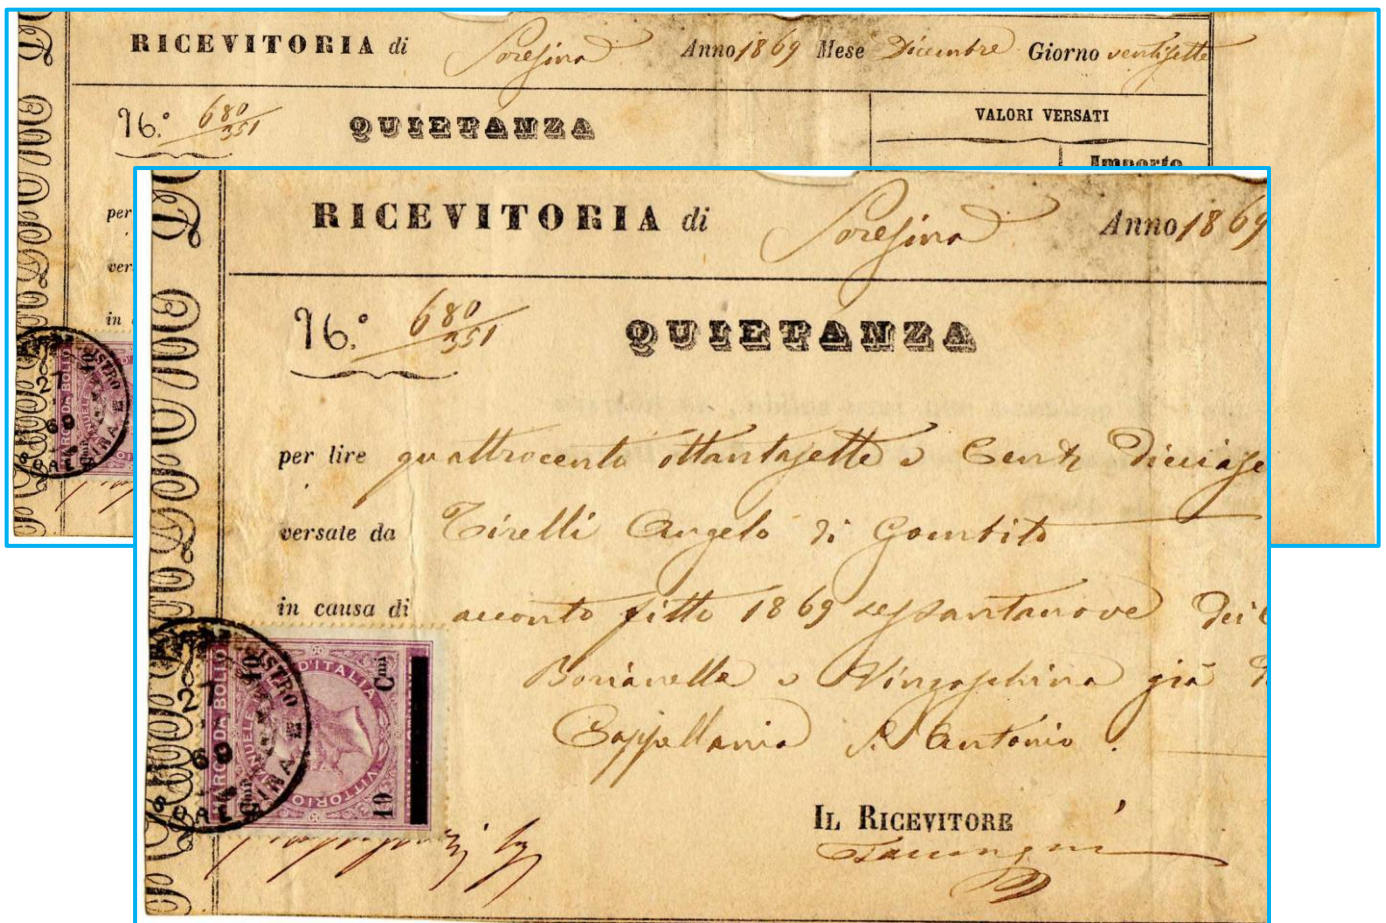 RICEVITORIA di Soresina Anno 1869 Mese Dicembre Giorno ventisette
N.° 680/351 QUIETANZA VALORI VERSATI
Importo
per
ver
in
MARCA DA BOLLO
27
69
RICEVITORIA di Soresina Anno 1869
N.° 680/351 QUIETANZA
per lire quattrocento ottantasette e Cent
versate da Tirelli Angelo di Gombito
in causa di acconto fitto 1869 sessantanove dei
già
Cappellania S. Antonio.
MARCA DA BOLLO
D'ITALIA
VITTORIO
10 Cmi
27
69
IL RICEVITORE